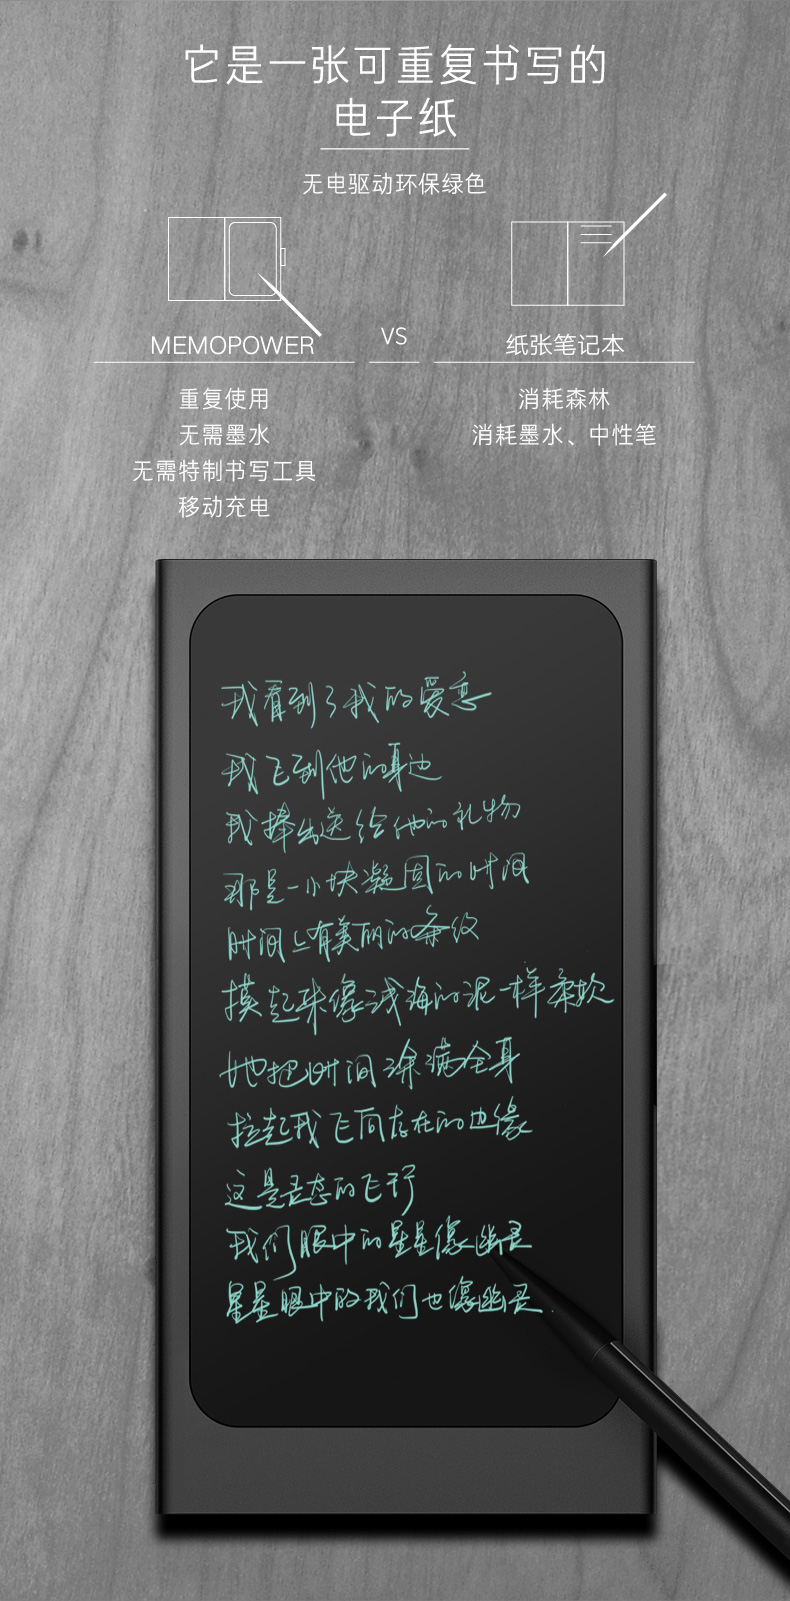 它是一张可重复书写的
电子纸
无电驱动环保绿色
MEMOPOWER
VS
纸张笔记本
重复使用
无需墨水
无需特制书写工具
移动充电
消耗森林
消耗墨水、中性笔
我看到了我的爱恋
我飞到他的身边
我捧出送给他的礼物
那是一小块凝固的时间
时间上有美丽的条纹
摸起来像浅海的泥一样柔软
她把时间涂满全身
拉起我飞向存在的边缘
这是灵态的飞行
我们眼中的星星像幽灵
星星眼中的我们也像幽灵.